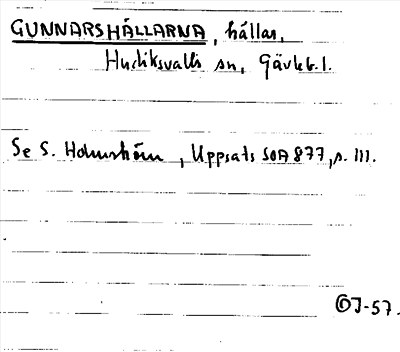 GUNNARSHÄLLARNA, hällar,
Hudiksvalls sn, Gävleb. l.
Se S. Holmström, Uppsats SOA 877, s. 111.
OJ-57.